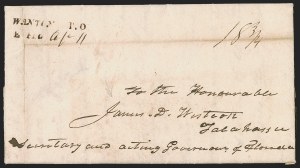 WANTON P.O
E. Fl. Apl 11
18 3/4
To the Honourable
James D. Westcott
Talahassee
Secretary and acting Governor of Florida